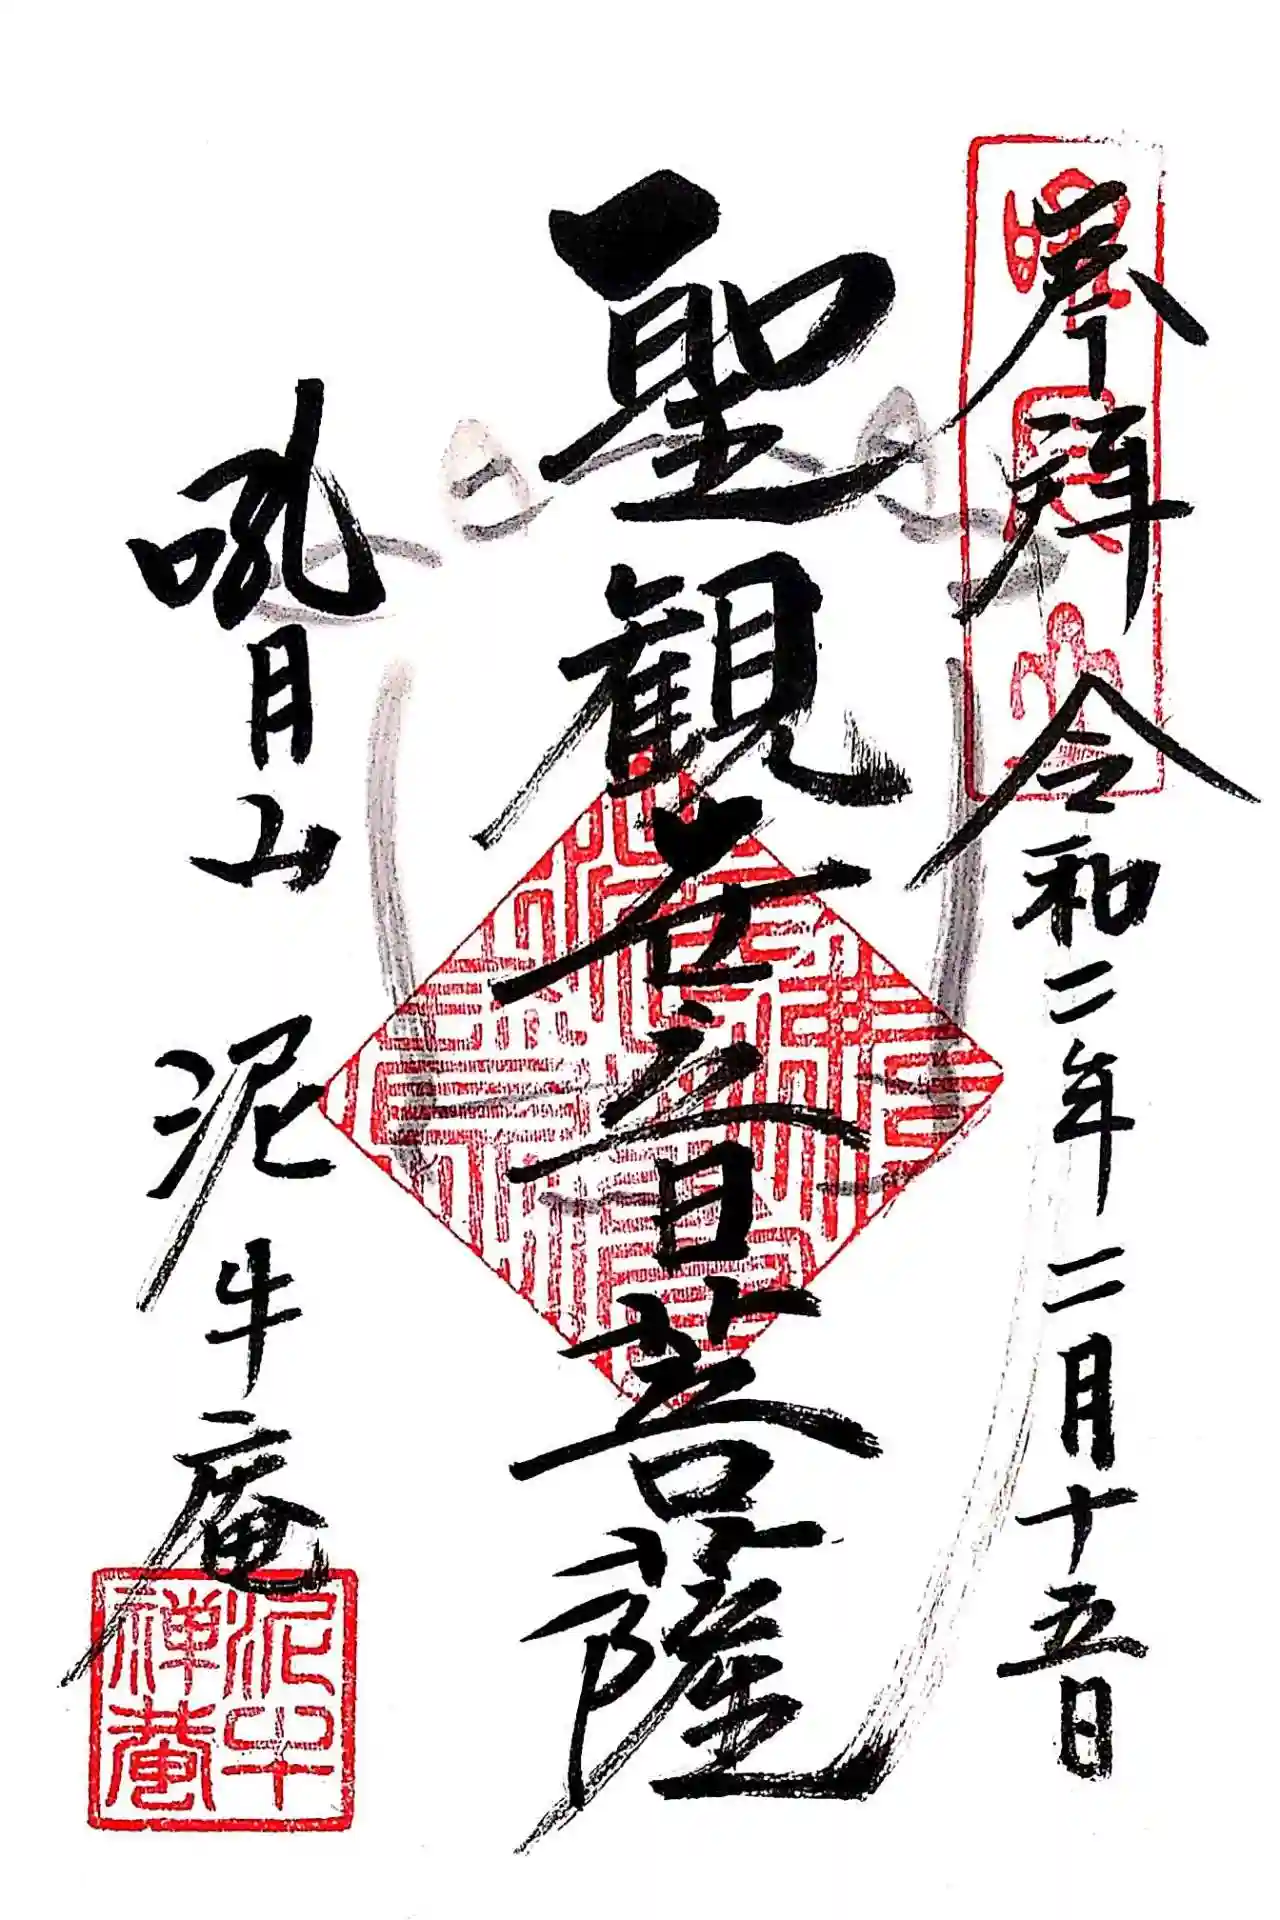 奉拜 令和二年二月十五日
聖観世音菩薩
吼月山 泥牛庵
吼月山
泥牛
禅菴